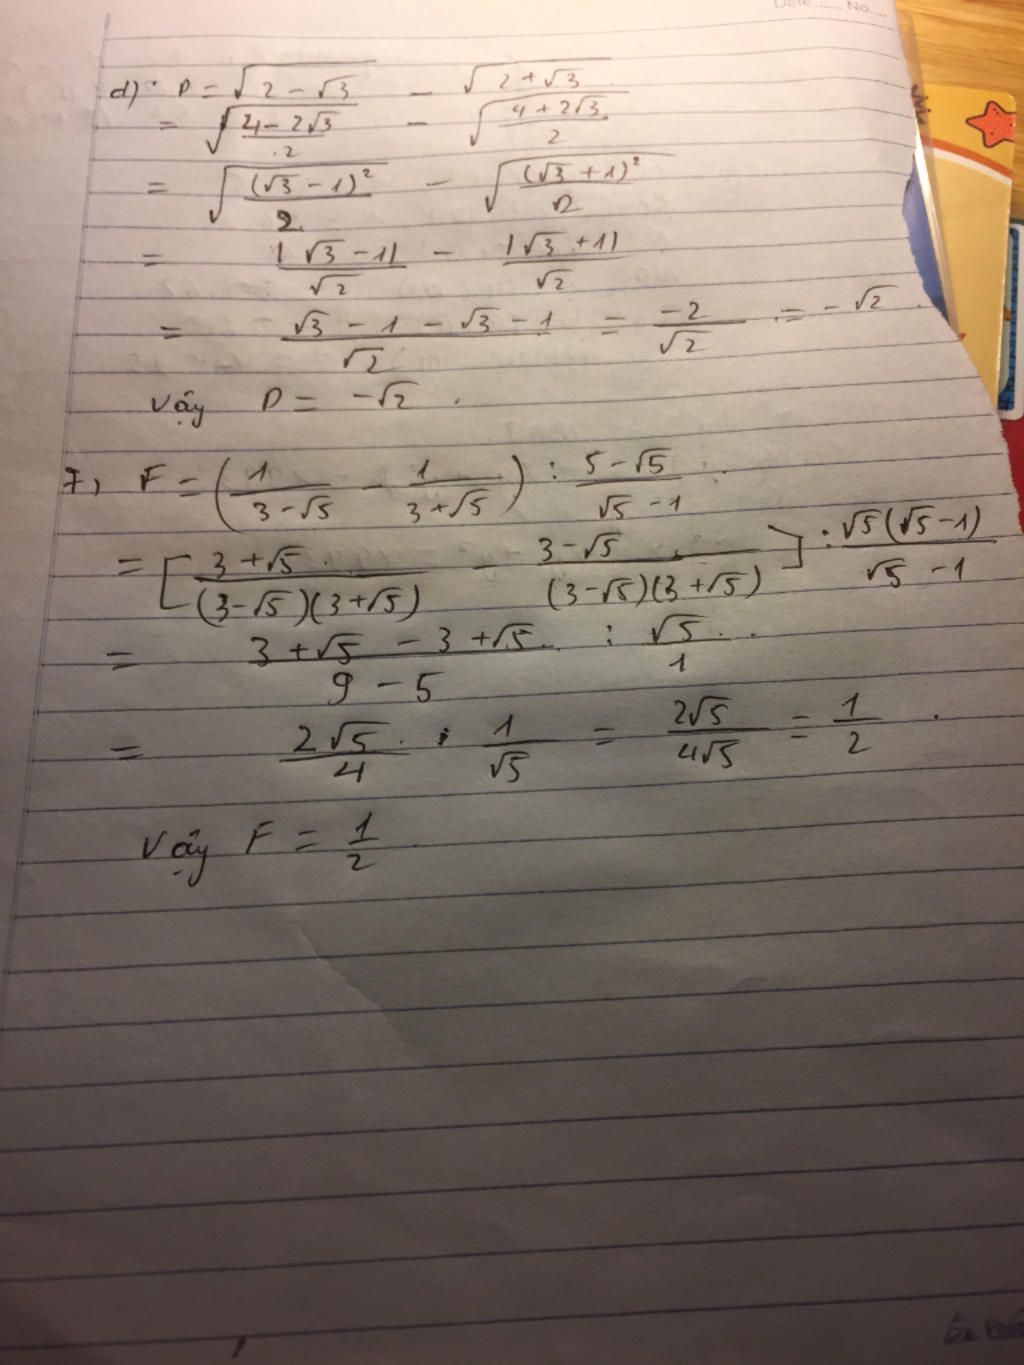 Date...... No....
d) P = √(2 - √3) - √(2 + √3)
= √((4 - 2√3)/2) - √((4 + 2√3)/2)
= √((√3 - 1)²/2) - √((√3 + 1)²/2)
= |√3 - 1|/√2 - |√3 + 1|/√2
= (√3 - 1 - √3 - 1)/√2 = -2/√2 = -√2
Vậy P = -√2.
7, F = (1/(3 - √5) - 1/(3 + √5)) : (5 - √5)/(√5 - 1)
= [(3 + √5)/((3 - √5)(3 + √5)) - (3 - √5)/((3 - √5)(3 + √5))] : √5(√5 - 1)/(√5 - 1)
= (3 + √5 - 3 + √5)/(9 - 5) : √5/1
= 2√5/4 . 1/√5 = 2√5/4√5 = 1/2.
Vậy F = 1/2